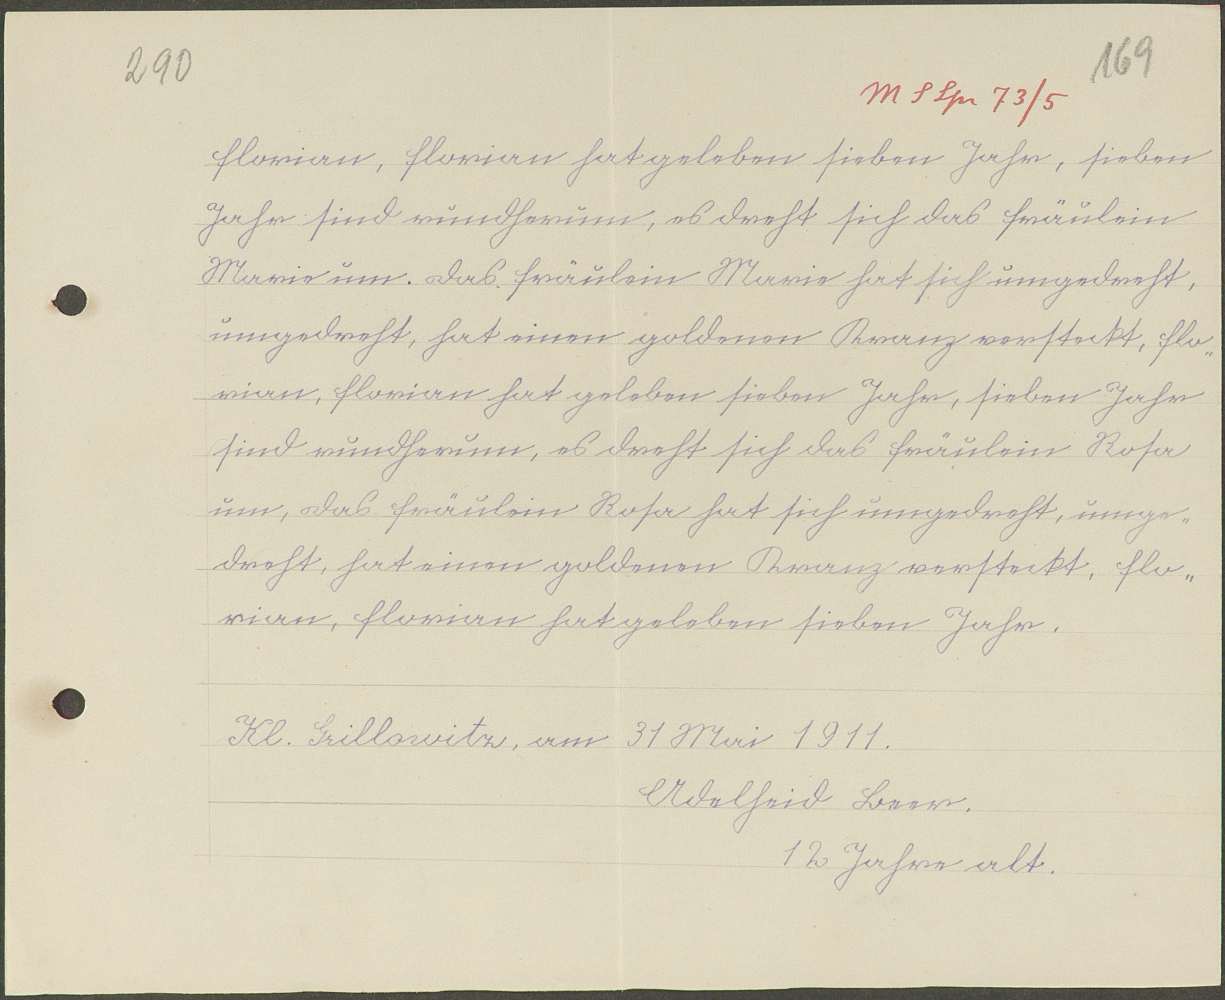 290
169
M S Spr 73/5
florian, florian hat geleben sieben Jahr, sieben
Jahr sind rundherum, es dreht sich das fräulein
Marie um. das fräulein Marie hat sich umgedreht,
umgedreht, hat einen goldenen Kranz versteckt, flo„
rian, florian hat geleben sieben Jahr, sieben Jahr
sind rundherum, es dreht sich das fräulein Rosa
um, das fräulein Rosa hat sich umgedreht, umge„
dreht, hat einen goldenen Kranz versteckt, flo„
rian, florian hat geleben sieben Jahr.
Kl. Grillowitz, am 31 Mai 1911.
Adelheid Beer.
12 Jahre alt.